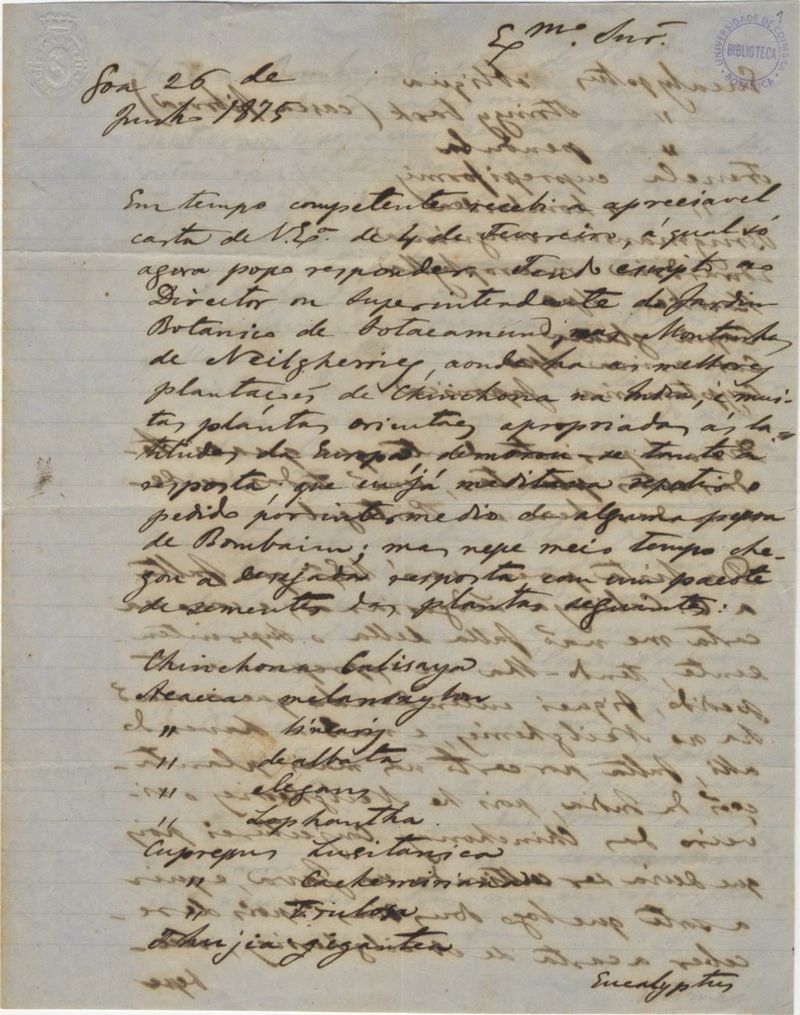 1
UNIVERSIDADE DE COIMBRA
BIBLIOTECA
BOTANICA
Exmo. Snr.
Goa 26 de
Junho 1875
Em tempo competente recebi a apreciavel
carta de V. Exa. de 4 de Fevereiro, á qual só
agora posso responder. Tendo escripto ao
Director ou Superintendente do Jardim
Botanico de Ootacamund, nas Montanhas
de Neilgherries, aonde ha as melhores
plantações de Chinchona na India, e mui-
tas plantas orientaes apropriadas ás la-
titudes da Europa, demorou-se tanto a
resposta, que eu já meditava repetir o
pedido por intermedio de alguma pessoa
de Bombaim; mas nesse meio tempo che-
gou a desejada resposta, com um pacote
de sementes das plantas seguintes:
Chinchona Calisaya
Acacia melanoxylon
" linearis
" dealbata
" elegans
" Lophantha
Cupressus Lusitanica
" Cachemiriana
" Torulosa
Thujia gigantea
Eucalyptus